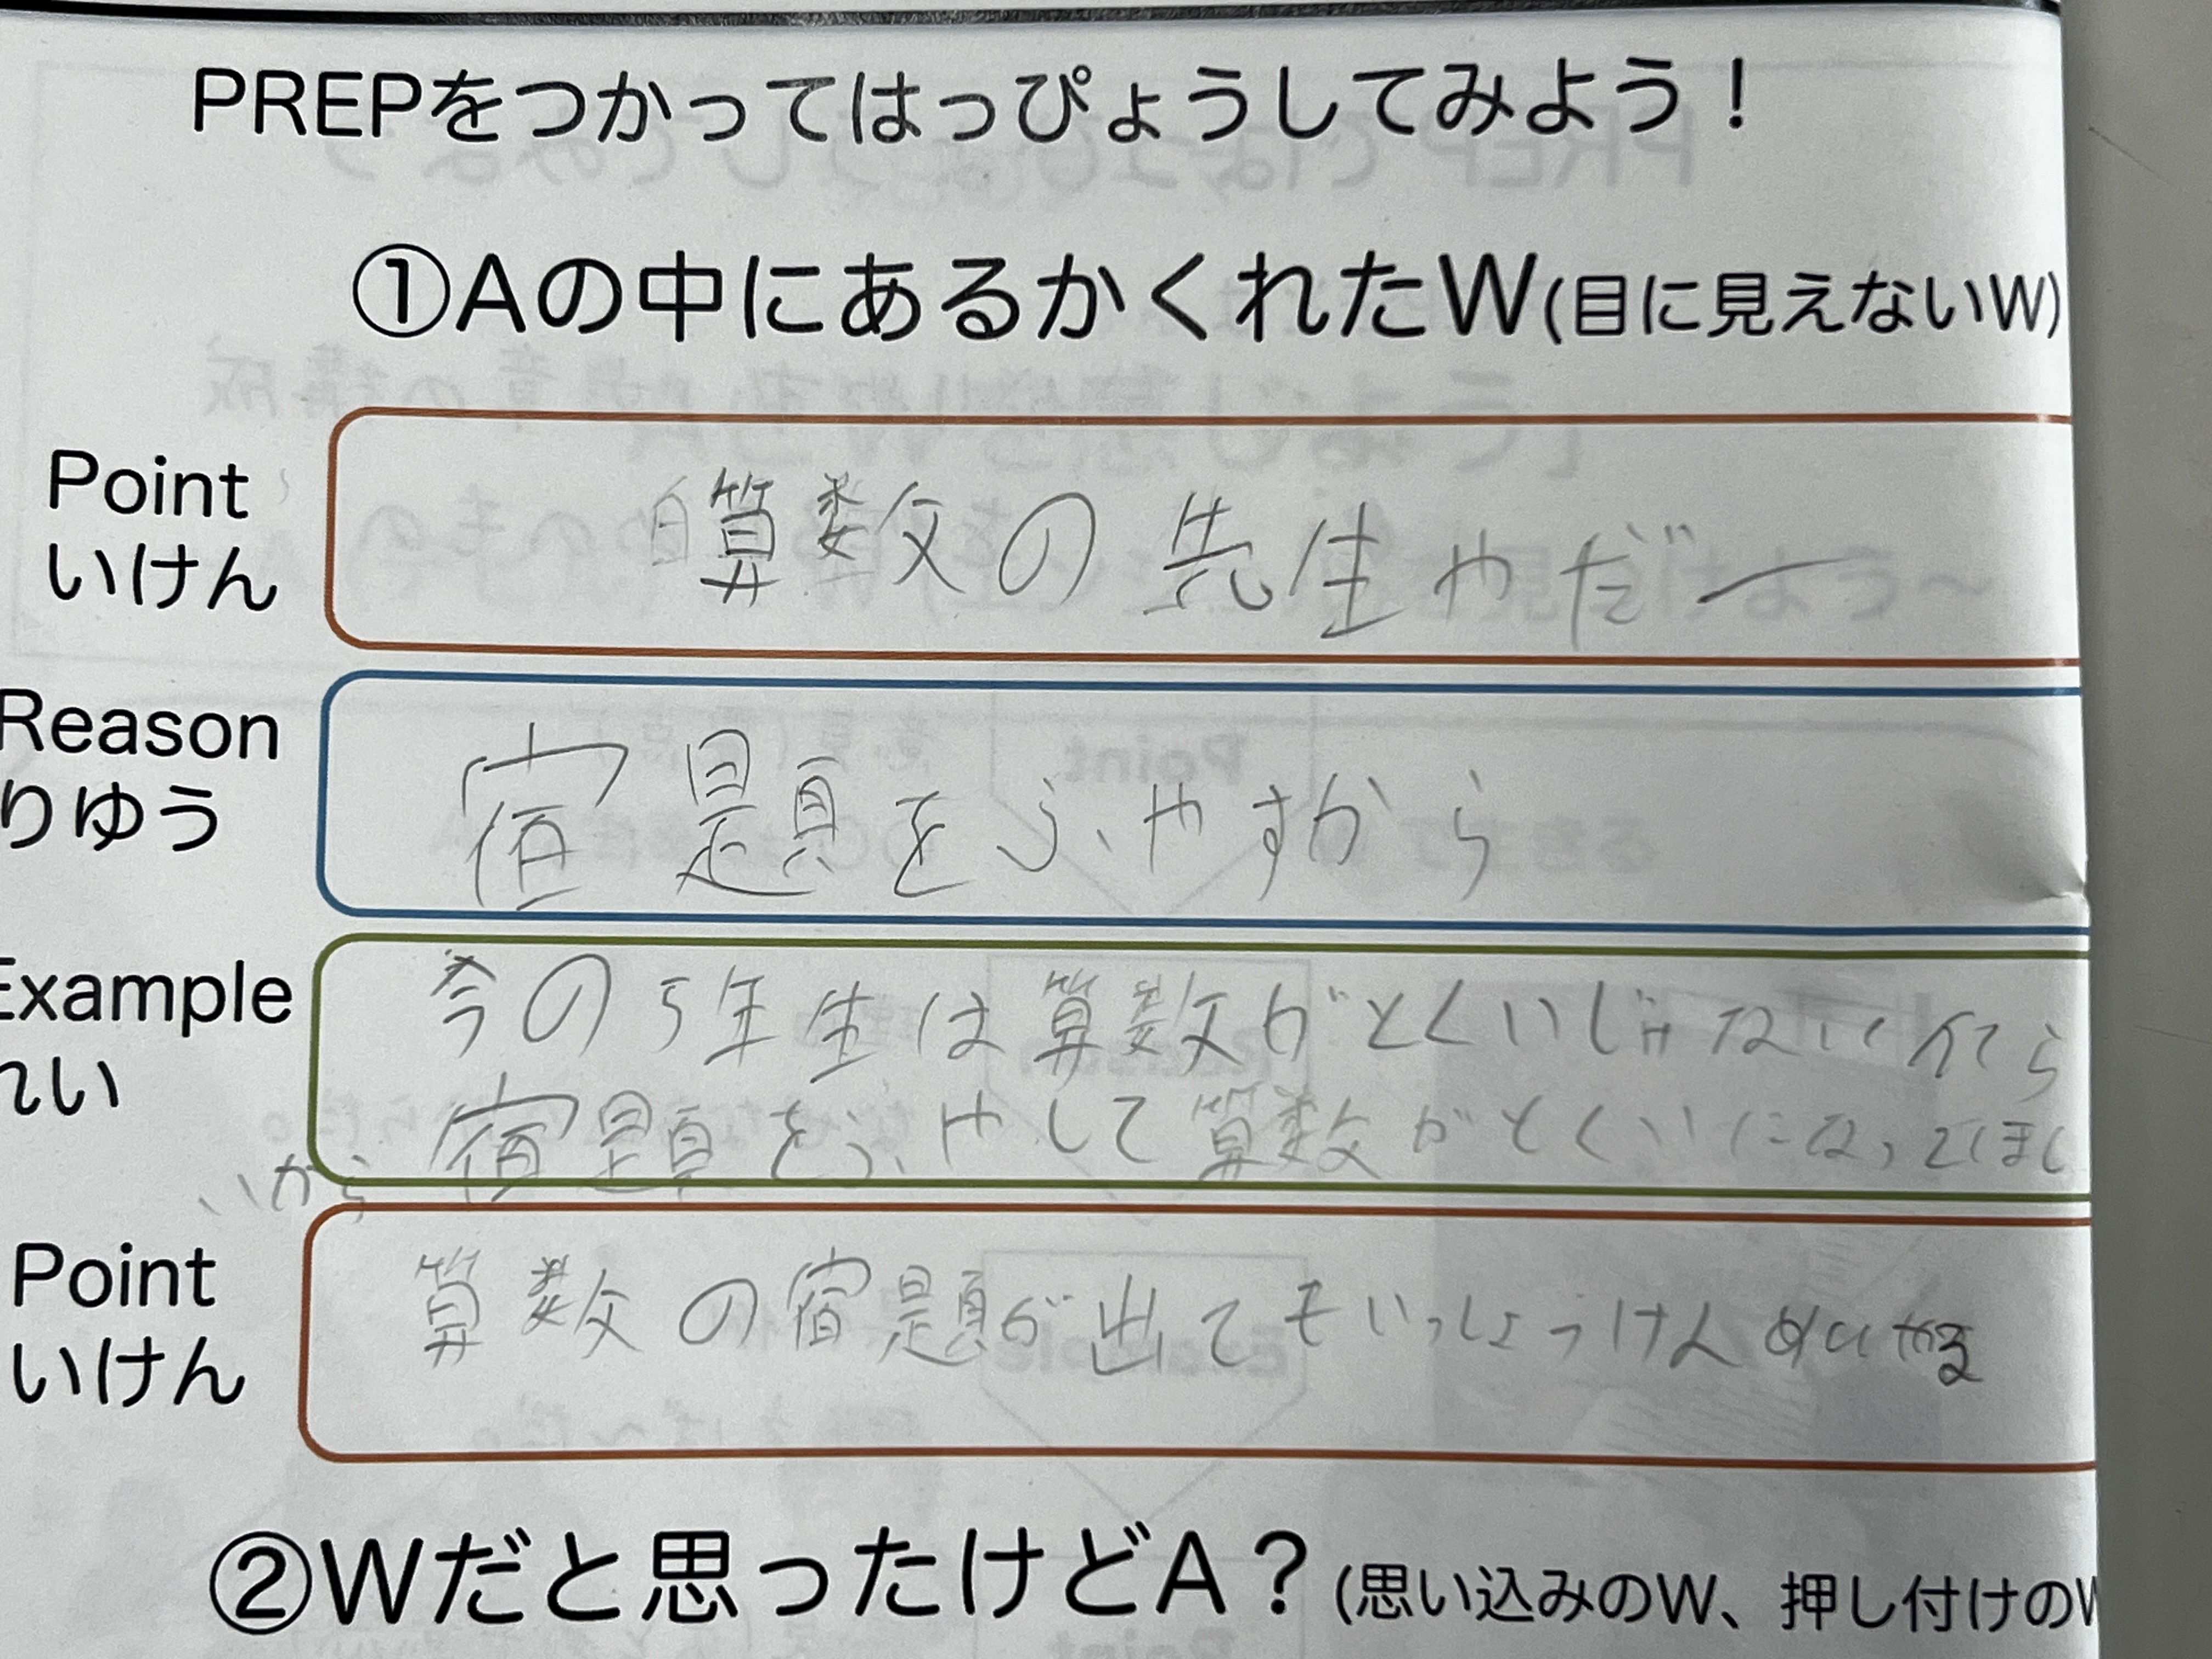 PREPをつかってはっぴょうしてみよう！
①Aの中にあるかくれたW(目に見えないW)
Point
いけん
算数の先生やだー
Reason
りゆう
宿題をふやすから
Example
れい
今の5年生は算数がとくいじゃないから
宿題をふやして算数がとくいになってほし
いから
Point
いけん
算数の宿題が出てもいっしょうけんめいやる
②Wだと思ったけどA？(思い込みのW、押し付けのW